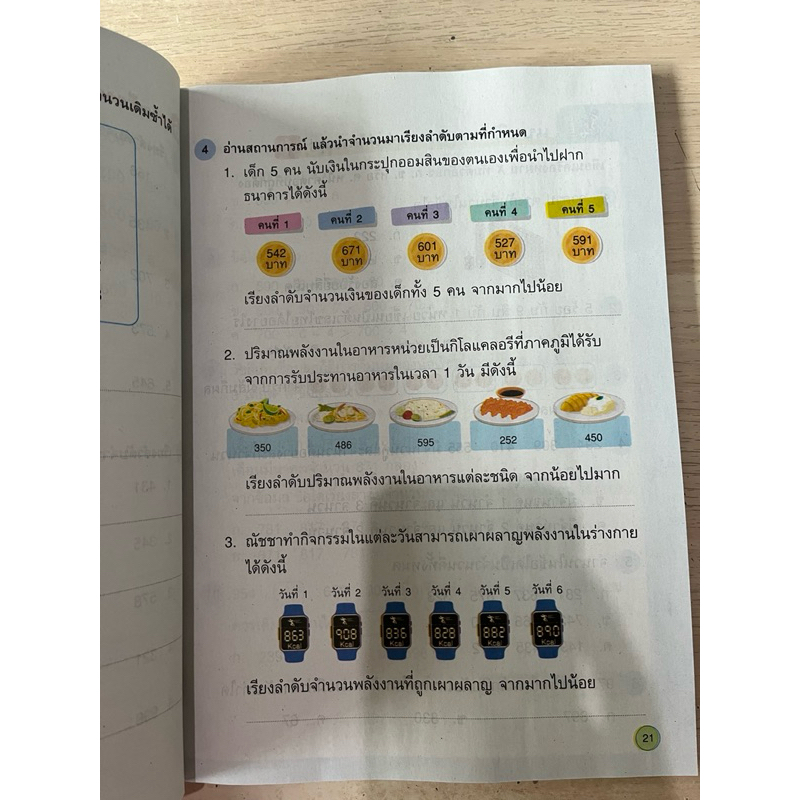 นวนเดิมซ้ำได้
4 อ่านสถานการณ์ แล้วนำจำนวนมาเรียงลำดับตามที่กำหนด
1. เด็ก 5 คน นับเงินในกระปุกออมสินของตนเองเพื่อนำไปฝาก
ธนาคารได้ดังนี้
คนที่ 1 คนที่ 2 คนที่ 3 คนที่ 4 คนที่ 5
542 671 601 527 591
บาท บาท บาท บาท บาท
เรียงลำดับจำนวนเงินของเด็กทั้ง 5 คน จากมากไปน้อย
2. ปริมาณพลังงานในอาหารหน่วยเป็นกิโลแคลอรีที่ภาคภูมิได้รับ
จากการรับประทานอาหารในเวลา 1 วัน มีดังนี้
350 486 595 252 450
เรียงลำดับปริมาณพลังงานในอาหารแต่ละชนิด จากน้อยไปมาก
3. ณัชชาทำกิจกรรมในแต่ละวันสามารถเผาผลาญพลังงานในร่างกาย
ได้ดังนี้
วันที่ 1 วันที่ 2 วันที่ 3 วันที่ 4 วันที่ 5 วันที่ 6
863 908 836 828 882 890
Kcal Kcal Kcal Kcal Kcal Kcal
เรียงลำดับจำนวนพลังงานที่ถูกเผาผลาญ จากมากไปน้อย
21